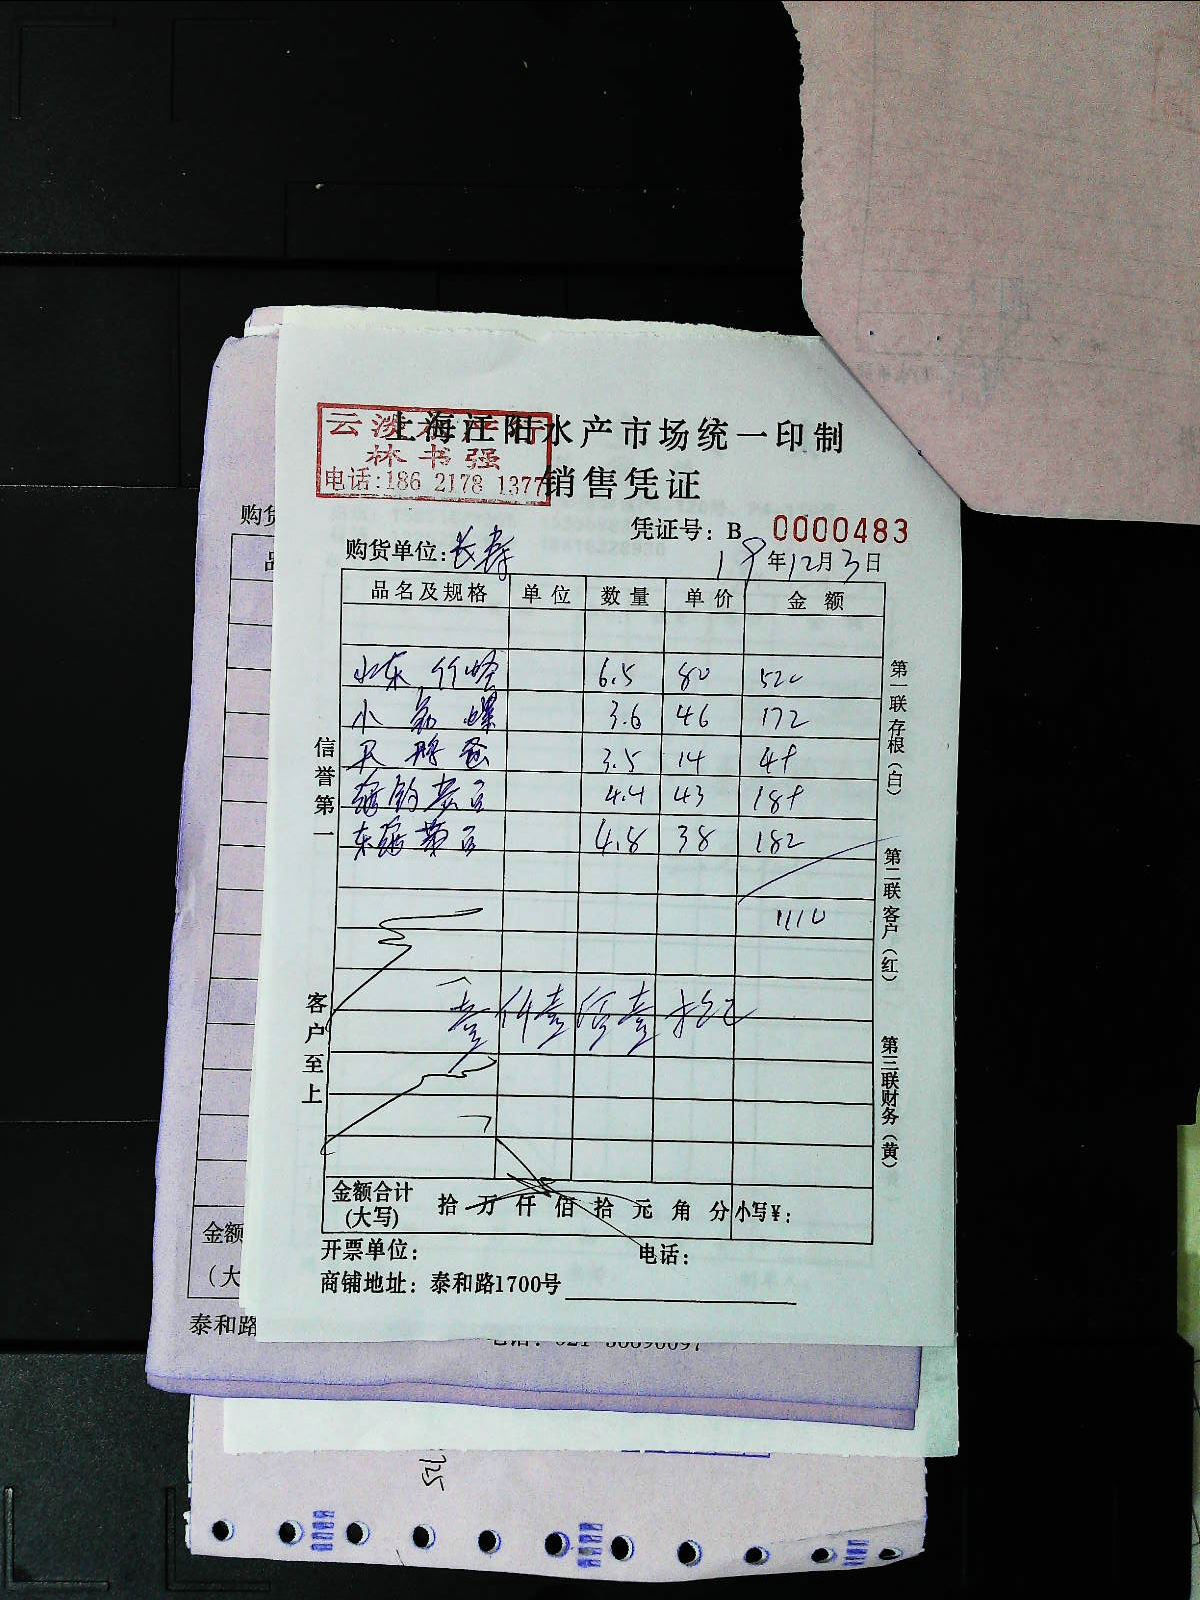 上海江阳水产市场统一印制
云淡水产行
林书强
电话:186 2178 1377
销售凭证
凭证号: B 0000483
购货单位:
19年12月3日
品名及规格 单位 数量 单价 金额
小东 竹蛏 6.5 80 520
小 螺 3.6 46 172
3.5 14 49
4.4 43 189
东海黄 4.8 38 182
1110
壹仟壹佰壹拾元
金额合计(大写) 拾 万 仟 佰 拾 元 角 分 小写¥:
开票单位: 电话:
商铺地址: 泰和路1700号
信誉第一
客户至上
第一联存根(白)
第二联客户(红)
第三联财务(黄)
购货
金额
(大
泰和路